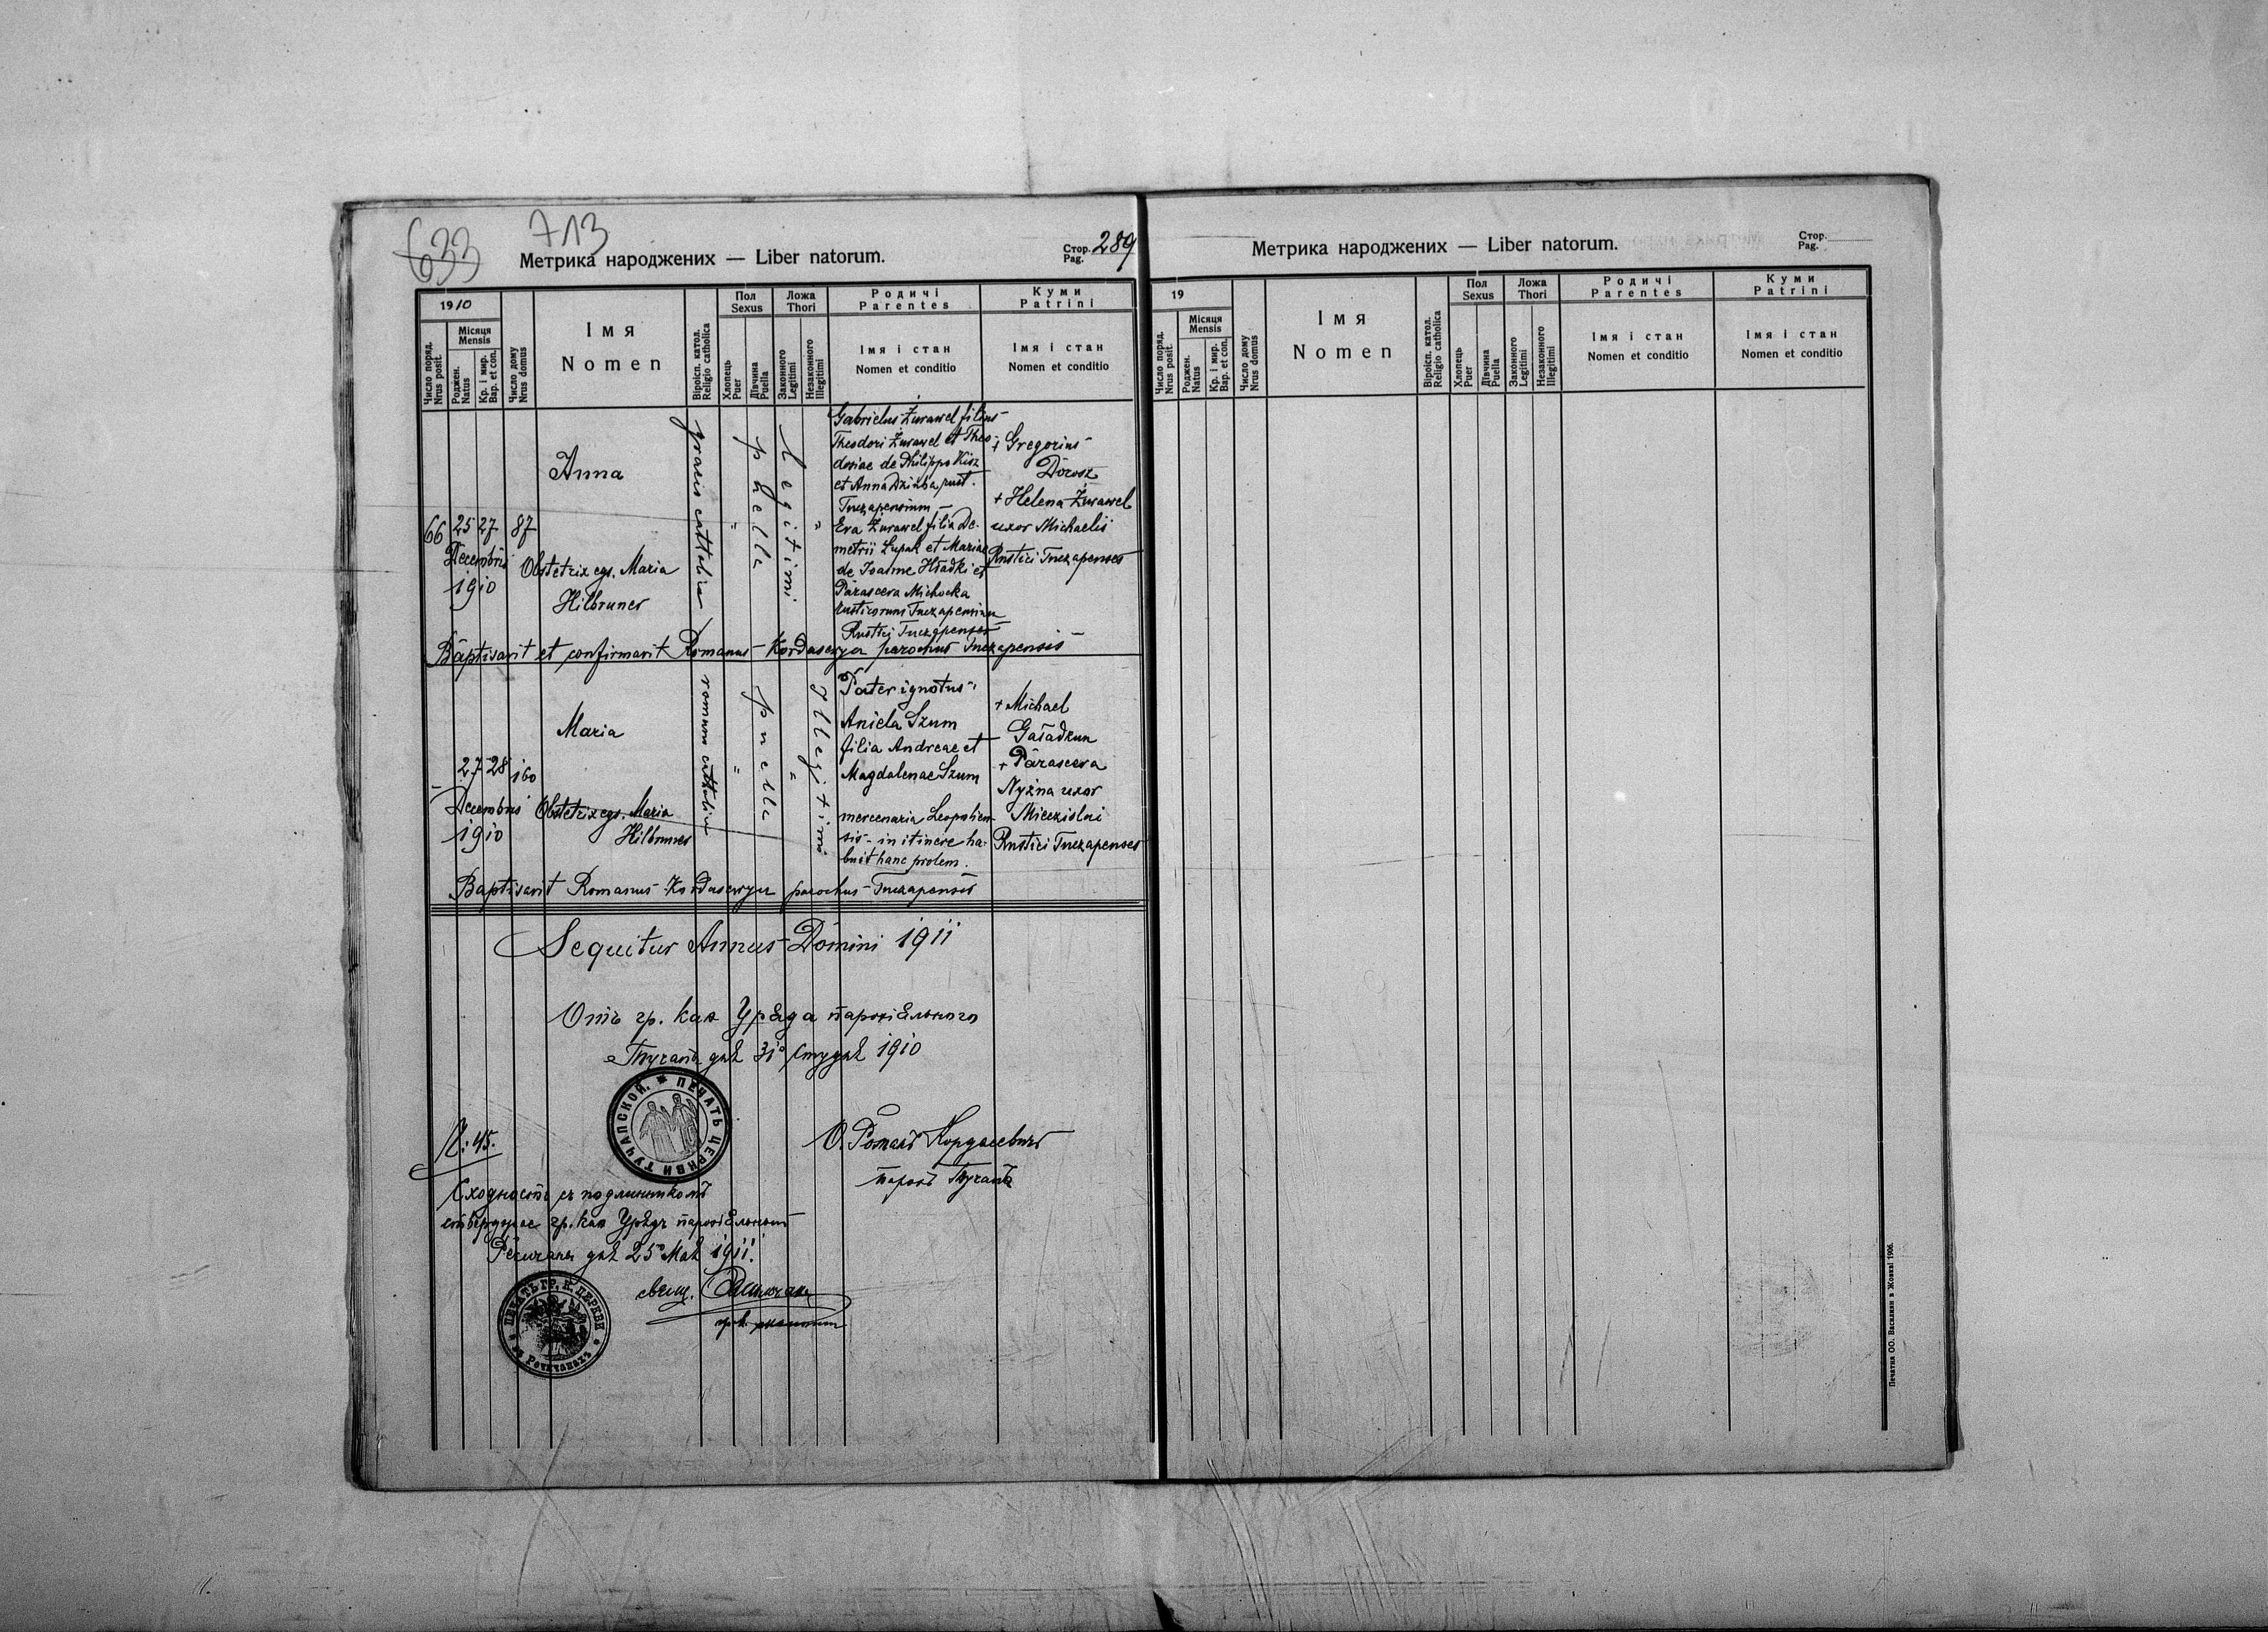 633 713
Метрика народжених — Liber natorum.
Стор. Pag. 289
1910
Число поряд. Nrus posit.
Місяця Mensis
Роджен. Natus
Кр. і мир. Bap. et con.
Число дому Nrus domus
Імя
Nomen
Віроісп. катол. Religio catholica
Пол Sexus
Хлопець Puer
Дівчина Puella
Ложа Thori
Законного Legitimi
Незаконного Illegitimi
Родичі
Parentes
Імя і стан
Nomen et conditio
Куми
Patrini
Імя і стан
Nomen et conditio
66 25 27 87
Decembris
1910
Anna
Obstetrix egs. Maria
Hilbruner
graeco catholica
" puella
Legitimi "
Gabrielus Żurawel filius
Theodori Żurawel et Theo-
dosiae de Philippo Kisz
et Anna Dziuba rust.
Tuczapensium
Eva Żurawel filia De-
metrii Łupak et Mariae
de Joanne Hładki et
Parascera Michocka
rusticorum Tuczapensium
Rustici Tuczapenses
+ Gregorius
Dorosz
+ Helena Żurawel
uxor Michaelis
Rustici Tuczapenses
Baptisavit et confirmavit Romanus Kordasewycz parochus Tuczapensis
27 28 160
Decembris
1910
Maria
Obstetrix egs. Maria
Hilbruner
romano catholica
" puella
" Illegitimi
Pater ignotus
Aniela Szum
filia Andreae et
Magdalenae Szum
mercenaria Leopolien-
sis - in itinere ha-
buit hanc prolem.
+ Michael
Gaładzun
+ Parascera
Nyżna uxor
Miecislai
Rustici Tuczapenses
Baptisavit Romanus Kordasewycz parochus Tuczapensis
Sequitur Annus Domini 1911
Отъ гр. кат Уряда парохіяльного
Тучапы дня 31 Студня 1910
✱ ПЕЧАТЬ ЦЕРКВИ ТУЧАПСКОЙ.
Ч: 45.
О. Романъ Кордасевичъ
парохъ Тучапъ
Сходность съ подлинникомъ
стверджае гр. кат Урядъ парохіяльный
Речичаны дня 25 Мая 1911.
ПЕЧАТЬ ГР. К. ЦЕРКВИ
въ Речичанахъ
свящ.
Метрика народжених — Liber natorum.
Стор. Pag.
19
Число поряд. Nrus posit.
Місяця Mensis
Роджен. Natus
Кр. і мир. Bap. et con.
Число дому Nrus domus
Імя
Nomen
Віроісп. катол. Religio catholica
Пол Sexus
Хлопець Puer
Дівчина Puella
Ложа Thori
Законного Legitimi
Незаконного Illegitimi
Родичі
Parentes
Імя і стан
Nomen et conditio
Куми
Patrini
Імя і стан
Nomen et conditio
Печатня ОО. Василиян в Жовкві 1906.